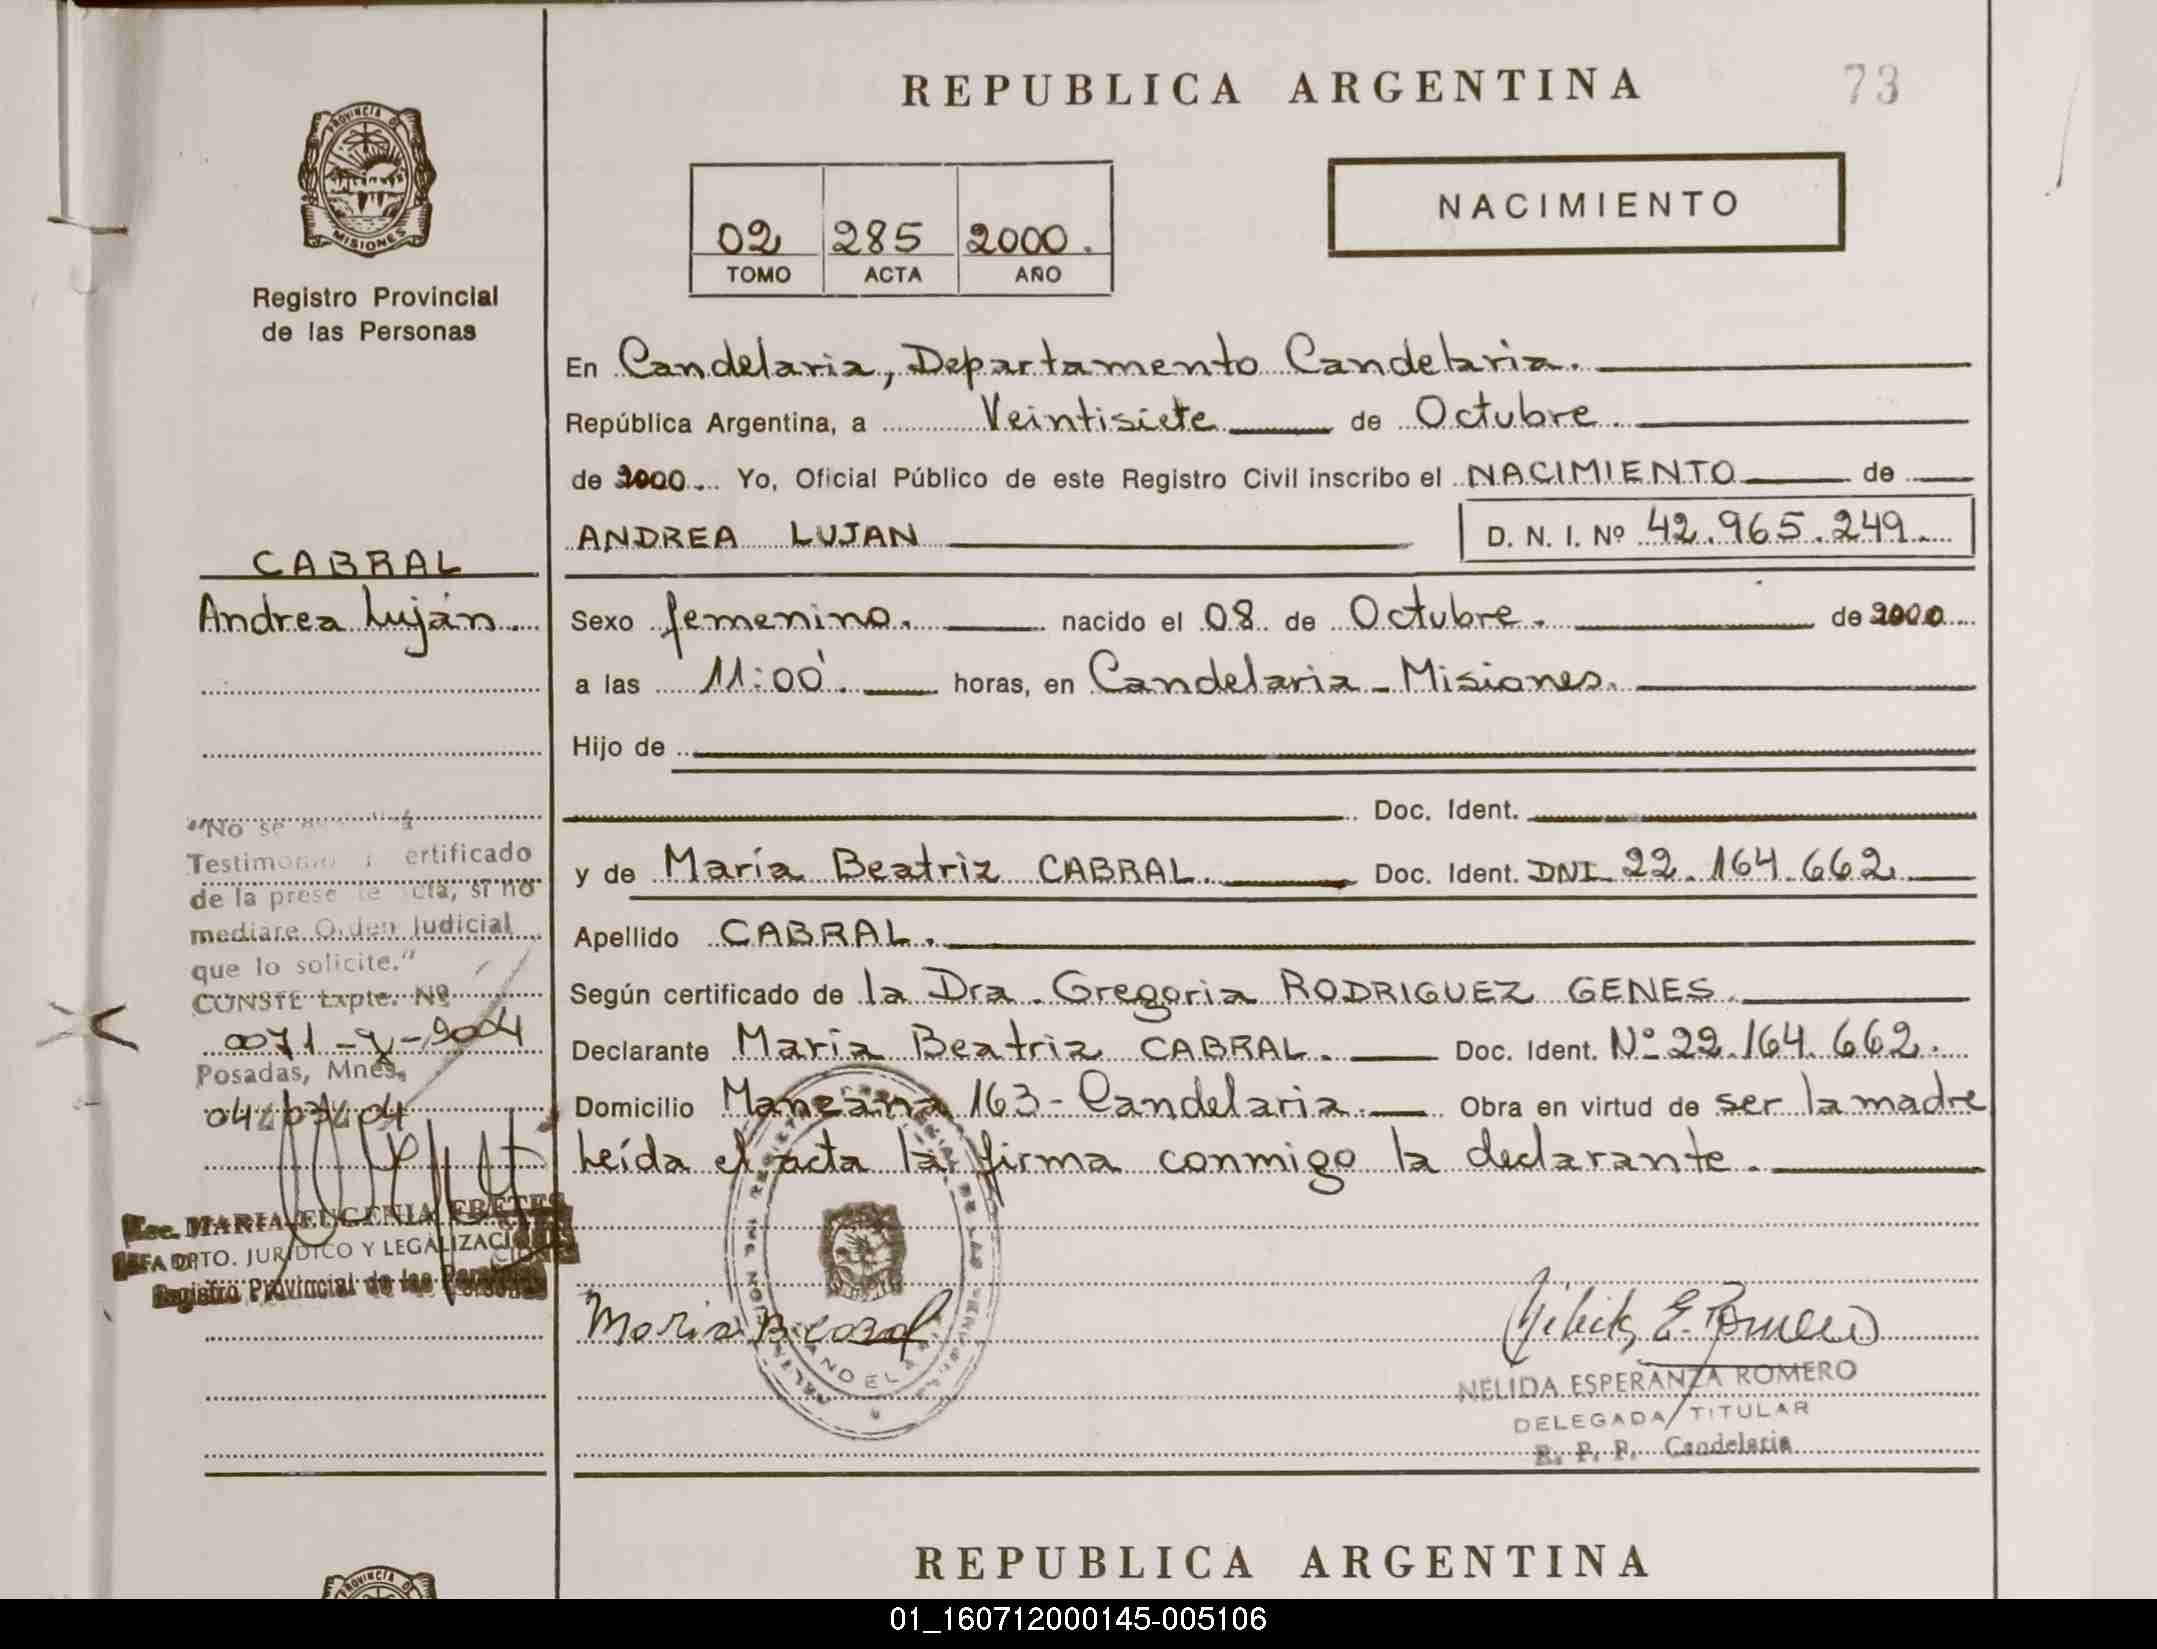 REPUBLICA ARGENTINA
73
PROVINCIA DE
MISIONES
Registro Provincial
de las Personas
02 285 2000.
TOMO ACTA AÑO
NACIMIENTO
En Candelaria, Departamento Candelaria.
República Argentina, a Veintisiete de Octubre
de 2000 Yo, Oficial Público de este Registro Civil inscribo el NACIMIENTO de
ANDREA LUJAN D. N. I. Nº 42.965.249
CABRAL
Andrea Luján
Sexo femenino. nacido el 08 de Octubre. de 2000
a las 11:00 horas, en Candelaria - Misiones.
Hijo de
Doc. Ident.
y de María Beatriz CABRAL. Doc. Ident. DNI 22.164.662
Apellido CABRAL.
Según certificado de la Dra. Gregoria RODRIGUEZ GENES.
Declarante María Beatriz CABRAL. Doc. Ident. Nº 22.164.662.
Domicilio Manzana 163 - Candelaria. Obra en virtud de ser la madre
Leída el acta la firma conmigo la declarante.
"No se
Testimonio ertificado
de la prese te cta, si no
mediare Orden Judicial
que lo solicite."
CONSTE Expte. Nº
0071 - - 2004
Posadas, Mnes,
04/03/04
Esc. MARIA EUGENIA FRETES
JEFA DPTO. JURIDICO Y LEGALIZACIONES
Registro Provincial de las Personas
Maria B. Cabral
Nélida E. Romero
NELIDA ESPERANZA ROMERO
DELEGADA TITULAR
R. P. P. Candelaria
REPUBLICA ARGENTINA
PROVINCIA DE
01_160712000145-005106